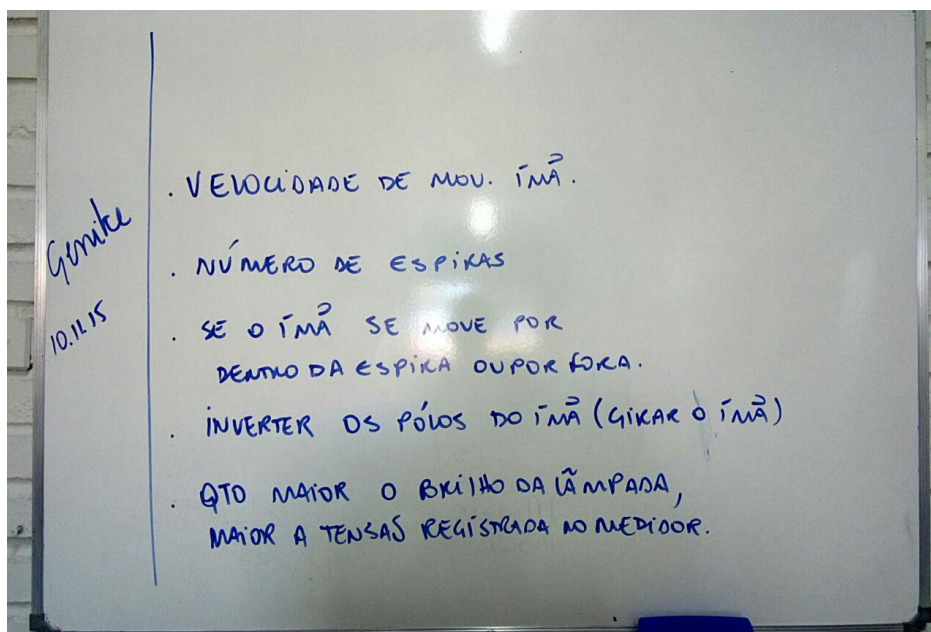 10.11.15
. VELOCIDADE DE MOV. ÍMÃ.
. NÚMERO DE ESPIRAS
. SE O ÍMÃ SE MOVE POR
DENTRO DA ESPIRA OU POR FORA.
. INVERTER OS PÓLOS DO ÍMÃ (GIRAR O ÍMÃ)
. QTO MAIOR O BRILHO DA LÂMPADA,
MAIOR A TENSÃO REGISTRADA NO MEDIDOR.